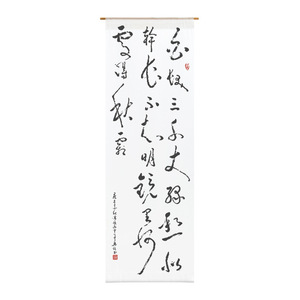 白髮三千丈緣愁似
箇長不知明鏡里何
處得秋霜